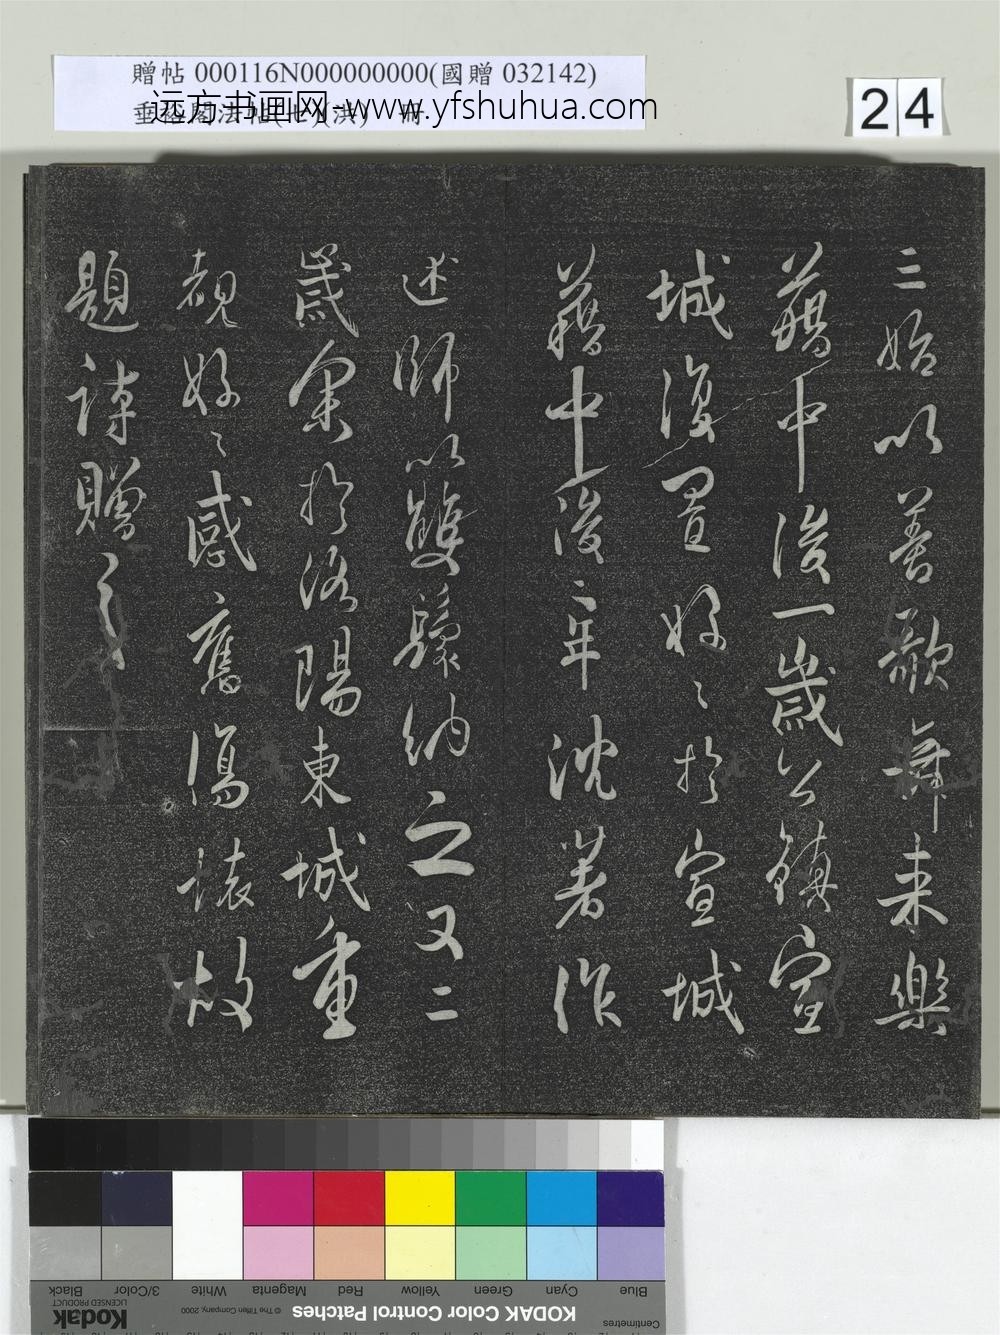 贈帖 000116N000000000(國贈 032142)
远方书画网-www.yfshuhua.com
24
三始以善歌舞来樂
藉中後一歲公鎮宣
城復置好〻於宣城
藉中後二年沈著作
述師以雙鬟納之又二
歲余於洛陽東城重
覩好〻感舊傷懐故
題詩贈之
Blue
Cyan
Green
Yellow
Red
Magenta
White
3/Color
Black
Centimetres
KODAK Color Control Patches
© The Tiffen Company, 2000
Kodak
LICENSED PRODUCT